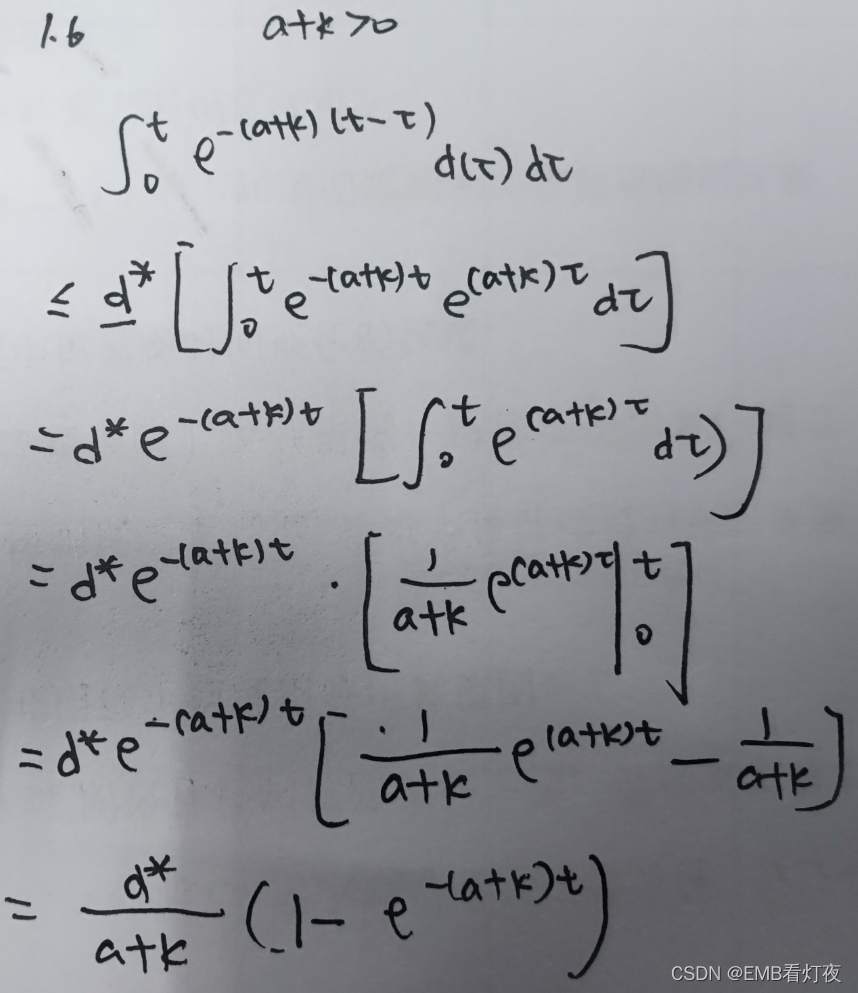 1.6 a+k>0
∫₀ᵗ e^{-(a+k)(t-τ)} d(τ) dτ
≤ d* [∫₀ᵗ e^{-(a+k)t} e^{(a+k)τ} dτ]
= d* e^{-(a+k)t} [∫₀ᵗ e^{(a+k)τ} dτ)]
= d* e^{-(a+k)t} · [1/(a+k) e^{(a+k)τ} |₀ᵗ]
= d* e^{-(a+k)t} [1/(a+k) e^{(a+k)t} − 1/(a+k)]
= d*/(a+k) (1 − e^{-(a+k)t})
CSDN @EMB看灯夜